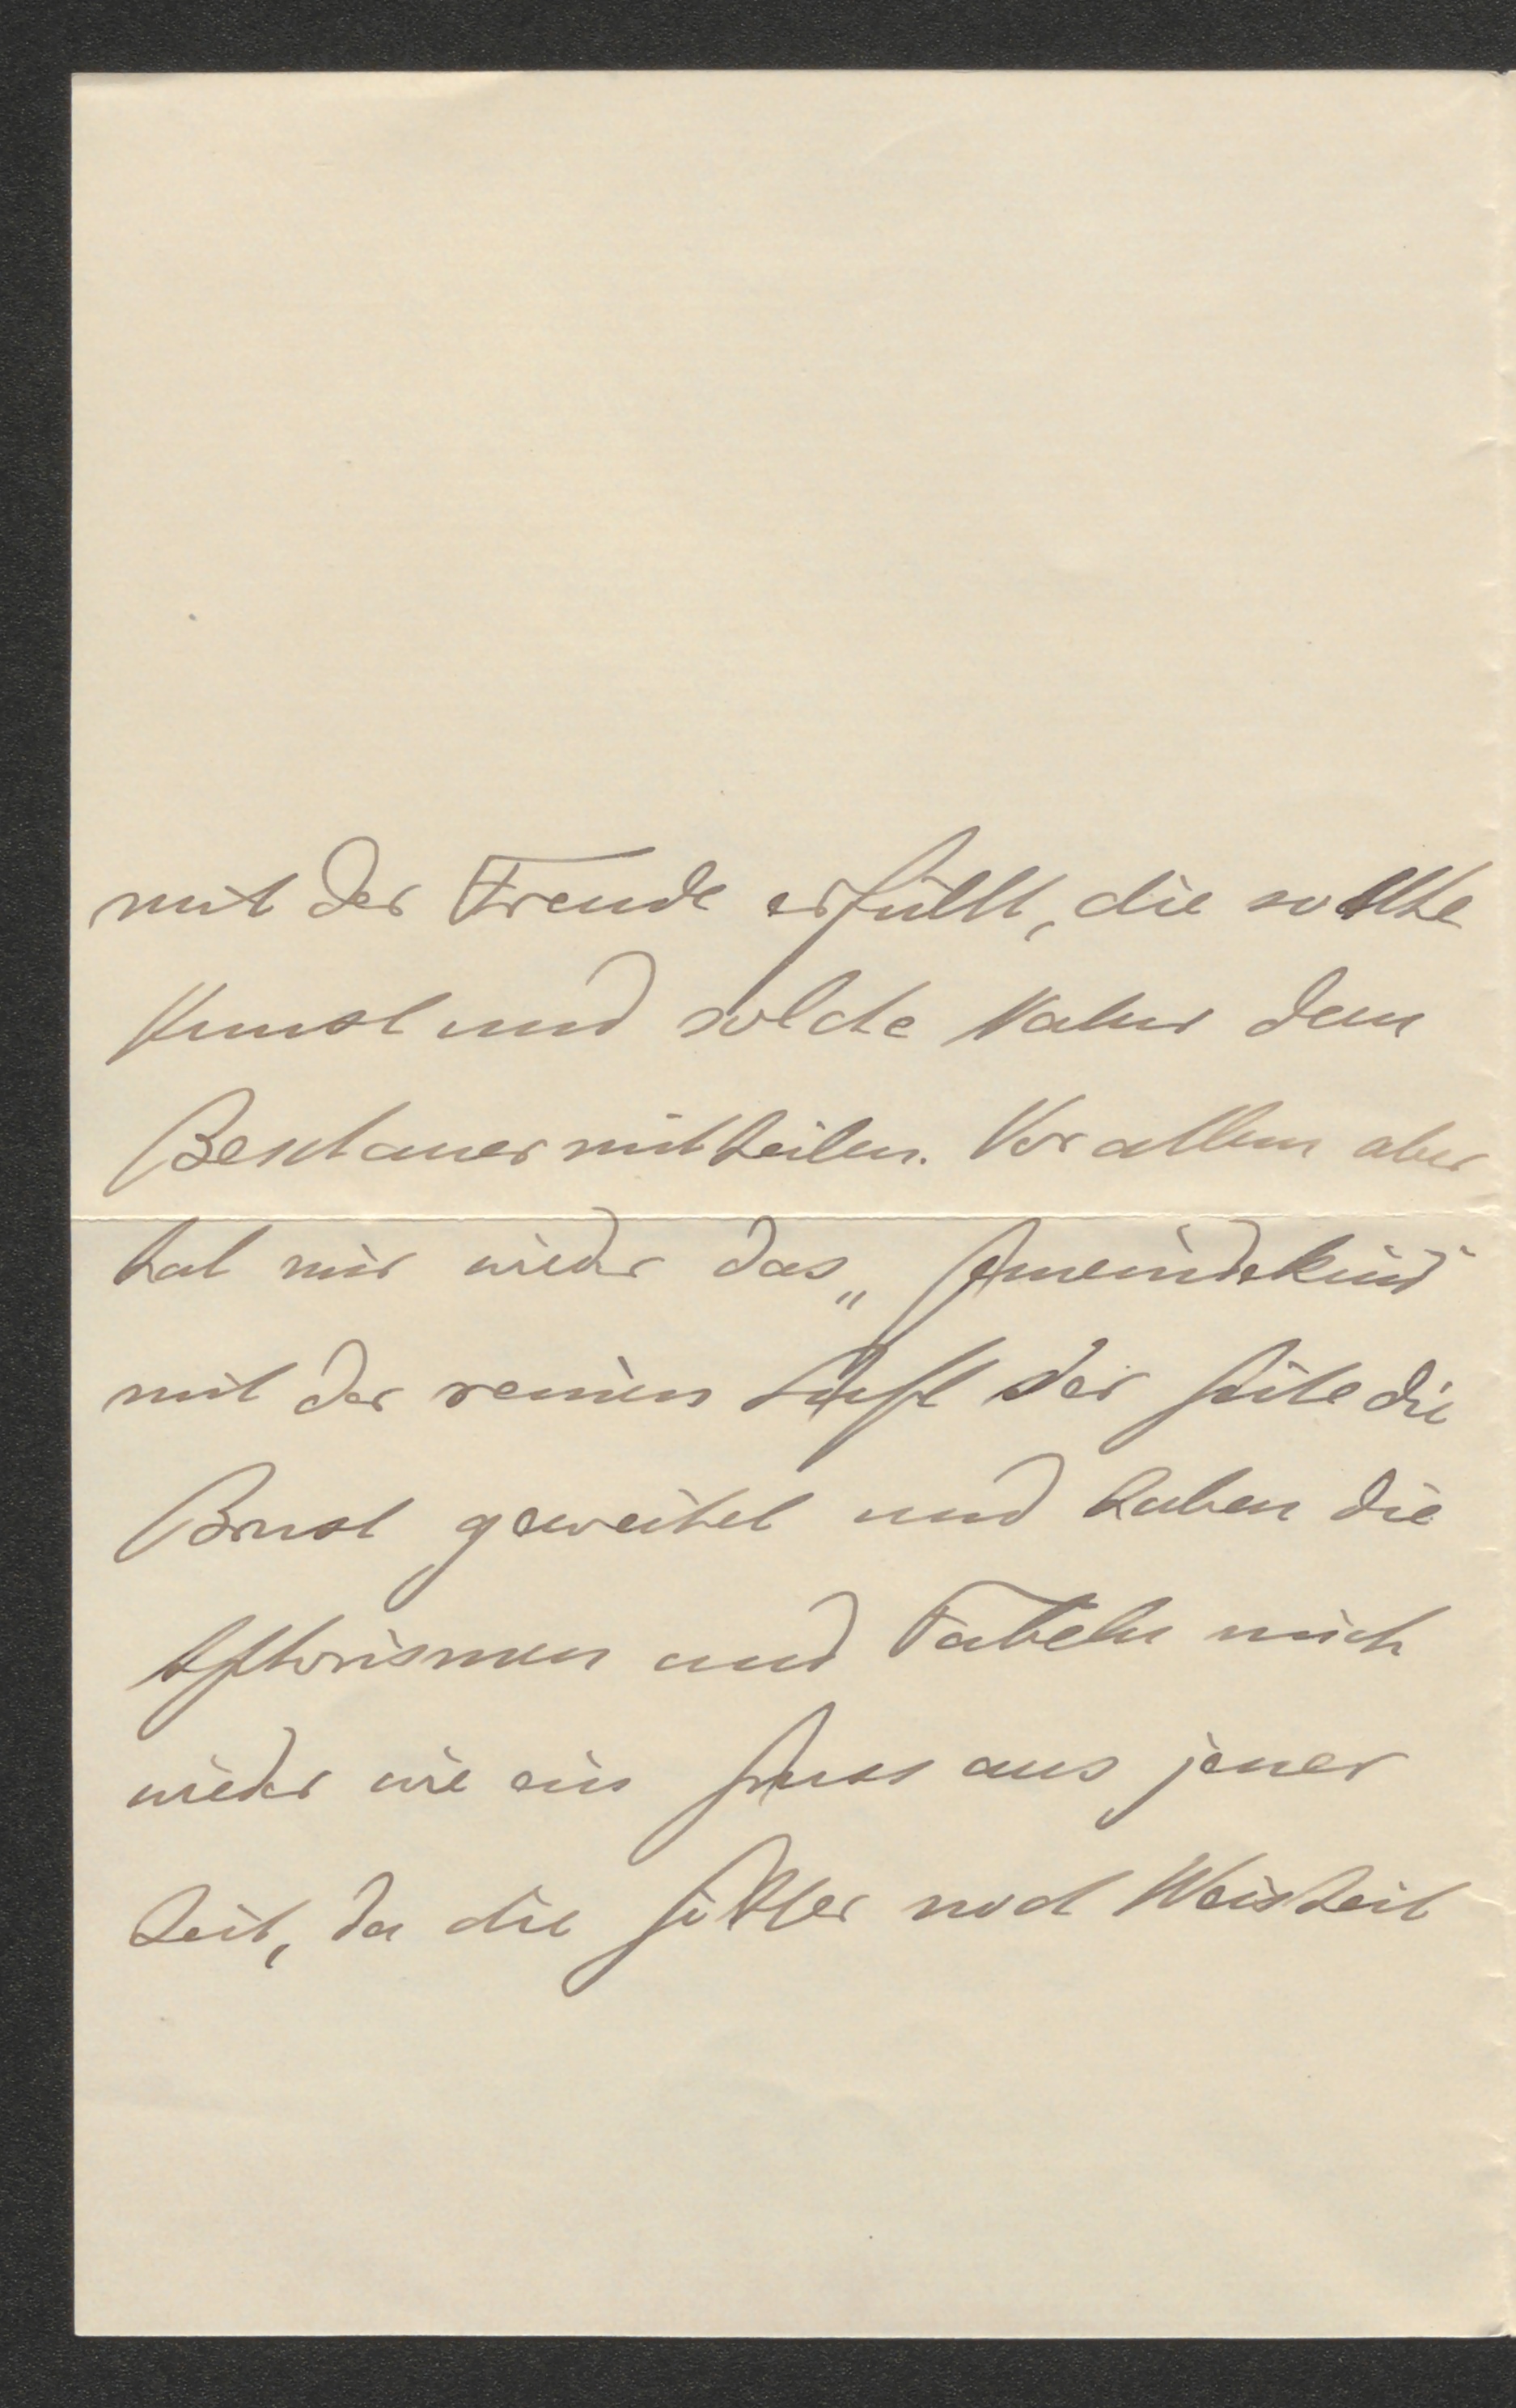 mit der Freude erfüllt, die solche
Kunst und solche Natur dem
Beschauer mitteilen. Vor allem aber
hat mir wieder das „Gemeindekind"
mit der reinen Luft der Güte die
Brust geweitet und haben die
Aphorismen und Fabeln mich
wieder wie ein Gruss aus jener
Zeit, da die Götter noch Weisheit